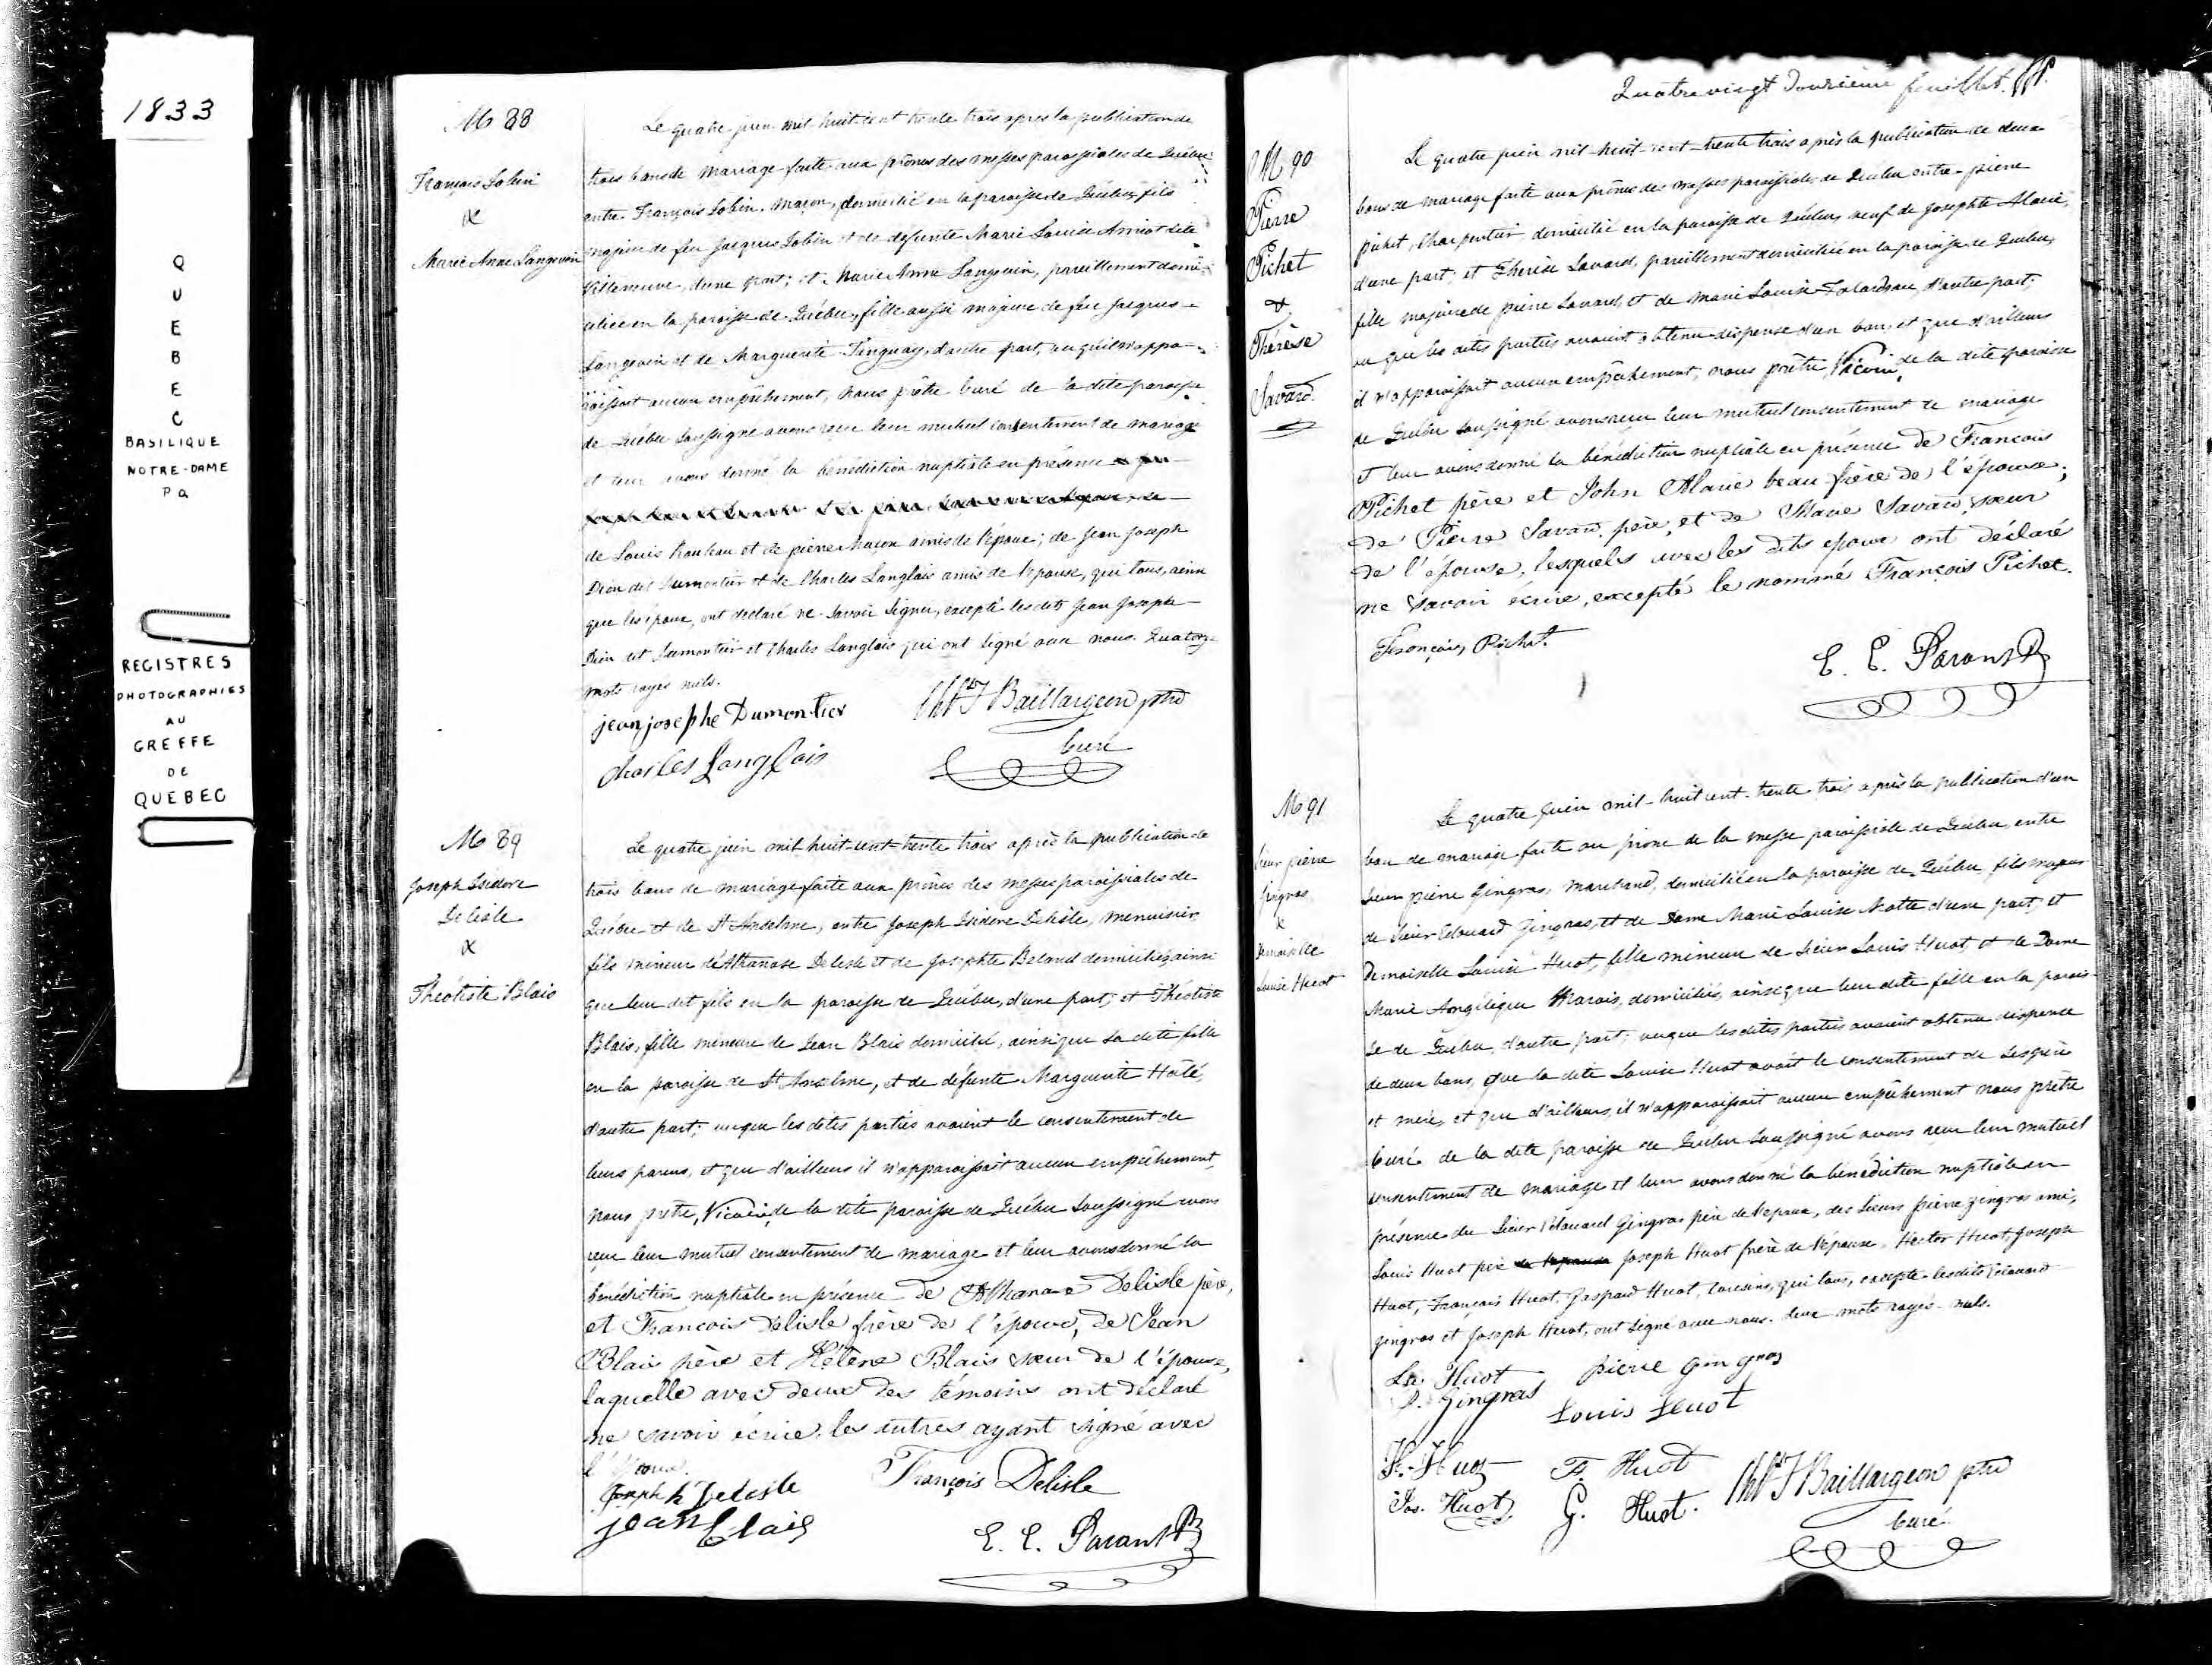 1833
Q
U
E
B
E
C
BASILIQUE
NOTRE-DAME
PQ
REGISTRES
PHOTOGRAPHIES
AU
GREFFE
DE
QUEBEC
M 88
François Lobin
&
Marie Anne Langevin
Le quatre juin mil huit-cent trente trois après la publication de
trois bans de mariage faite aux prônes des messes paroissiales de Québec
entre François Lobin, maçon, domicilié en la paroisse de Québec, fils
majeur de feu Jacques Lobin et de defunte Marie Louise Amiot dite
Villeneuve, d'une part; et Marie Anne Langevin, pareillement domi-
ciliée en la paroisse de Québec, fille aussi majeure de feu Jacques
Langevin et de Marguerite Tinguay, d'autre part, vu qu'il n'appa-
raissait aucun empêchement, nous prêtre Curé de la dite paroisse
de Québec soussigné avons reçu leur mutuel consentement de mariage
et leur avons donné la bénédiction nuptiale en présence
de Louis Rouleau et de pierre maçon amis de l'époux; de Jean Joseph
Dion dit Dumontier et de Charles Langlais amis de l'épouse, qui tous, ainsi
que les époux, ont declaré ne savoir signer, excepté les dits Jean Joseph
Dion dit Dumontier et Charles Langlais qui ont signé avec nous. Quatorze
mots rayés nuls.
jean josephe Dumontier
Chs F Baillargeon ptre
Curé
charles Langlais
M 89
Joseph Isidore
Delisle
&
Théotiste Blais
Le quatre juin mil huit-cent-trente trois après la publication de
trois bans de mariage faite aux prônes des messes paroissiales de
Québec et de St Anselme, entre Joseph Isidore Delisle, menuisier,
fils mineur d'Athanase Delisle et de Josephte Beland domiciliés, ainsi
que leur dit fils en la paroisse de Québec, d'une part; et Théotiste
Blais, fille mineure de Jean Blais domicilié, ainsi que sa dite fille
en la paroisse de St Anselme, et de défunte Marguerite Hallé,
d'autre part; vu que les dites parties avaient le consentement de
leurs parens, et que d'ailleurs il n'apparaissait aucun empêchement,
nous prêtre, Vicaire de la dite paroisse de Québec soussigné avons
reçu leur mutuel consentement de mariage et leur avons donné la
bénédiction nuptiale en présence de Athanase Delisle père,
et François Delisle frère de l'époux, de Jean
Blais père et Hélène Blais sœur de l'épouse,
laquelle avec deux des témoins ont déclaré
ne savoir écrire, les autres ayant signé avec
l'époux.
Joseph Ir Delisle
François Delisle
jean Blais
E. E. Parant Ptre
Quatrevingt douzieme feuillet.
M 90
Pierre
Pichet
&
Thérèse
Savard
Le quatre juin mil-huit-cent-trente trois après la publication de deux
bans de mariage faite aux prônes des messes paroissiales de Québec entre pierre
pichet, Charpentier domicilié en la paroisse de Québec, veuf de Josephte Alarie,
d'une part; et Therèse Savard, pareillement domiciliée en la paroisse de Québec,
fille majeure de pierre Savard, et de Marie Louise Falardeau, d'autre part;
vu que les dites parties avaient obtenu dispense d'un ban, et que d'ailleurs
il n'apparaissait aucun empêchement, nous prêtre, Vicaire de la dite paroisse
de Québec soussigné avons reçu leur mutuel consentement de mariage
et leur avons donné la bénédiction nuptiale en présence de François
Pichet père et John Alarie beau frère de l'épouse;
de Pierre Savard, père, et de Marie Savard, sœur
de l'épouse, lesquels avec les dits époux ont déclaré
ne savoir écrire, excepté le nommé François Pichet.
François Pichet.
E. E. Parant Ptre
M 91
Sieur pierre
Gingras
&
Demoiselle
Louise Huot
Le quatre juin mil-huit cent-trente trois après la publication d'un
ban de mariage faite au prone de la messe paroissiale de Québec, entre
Sieur pierre Gingras, marchand, domicilié en la paroisse de Québec, fils majeur
de Sieur Edouard Gingras, et de Dame Marie Louise Motte d'une part; et
Demoiselle Louise Huot, fille mineure de Sieur Louis Huot, et de Dame
Marie Angélique Marois, domiciliés, ainsi que leur dite fille en la parois-
se de Québec, d'autre part; vu que les dites parties avaient obtenu dispense
de deux bans, que la dite Louise Huot avait le consentement de ses père
et mère, et que d'ailleurs, il n'apparaissait aucun empêchement nous prêtre
Curé de la dite paroisse de Québec soussigné avons reçu leur mutuel
consentement de mariage et leur avons donné la bénédiction nuptiale en
présence du Sieur Edouard Gingras père de l'epoux, des Sieurs pierre gingras ami,
Louis Huot père de l'epouse Joseph Huot frère de l'épouse, Hector Huot, Joseph
Huot, François Huot, Gaspard Huot, cousins, qui tous, excepté les dits Edouard
gingras et Joseph Huot, ont signé avec nous. deux mots rayés nuls.
Lse Huot
pierre gingras
P. Gingras
Louis Huot
H. Huot
F. Huot
Chs F Baillargeon ptre
Jos. Huot
G. Huot.
Curé